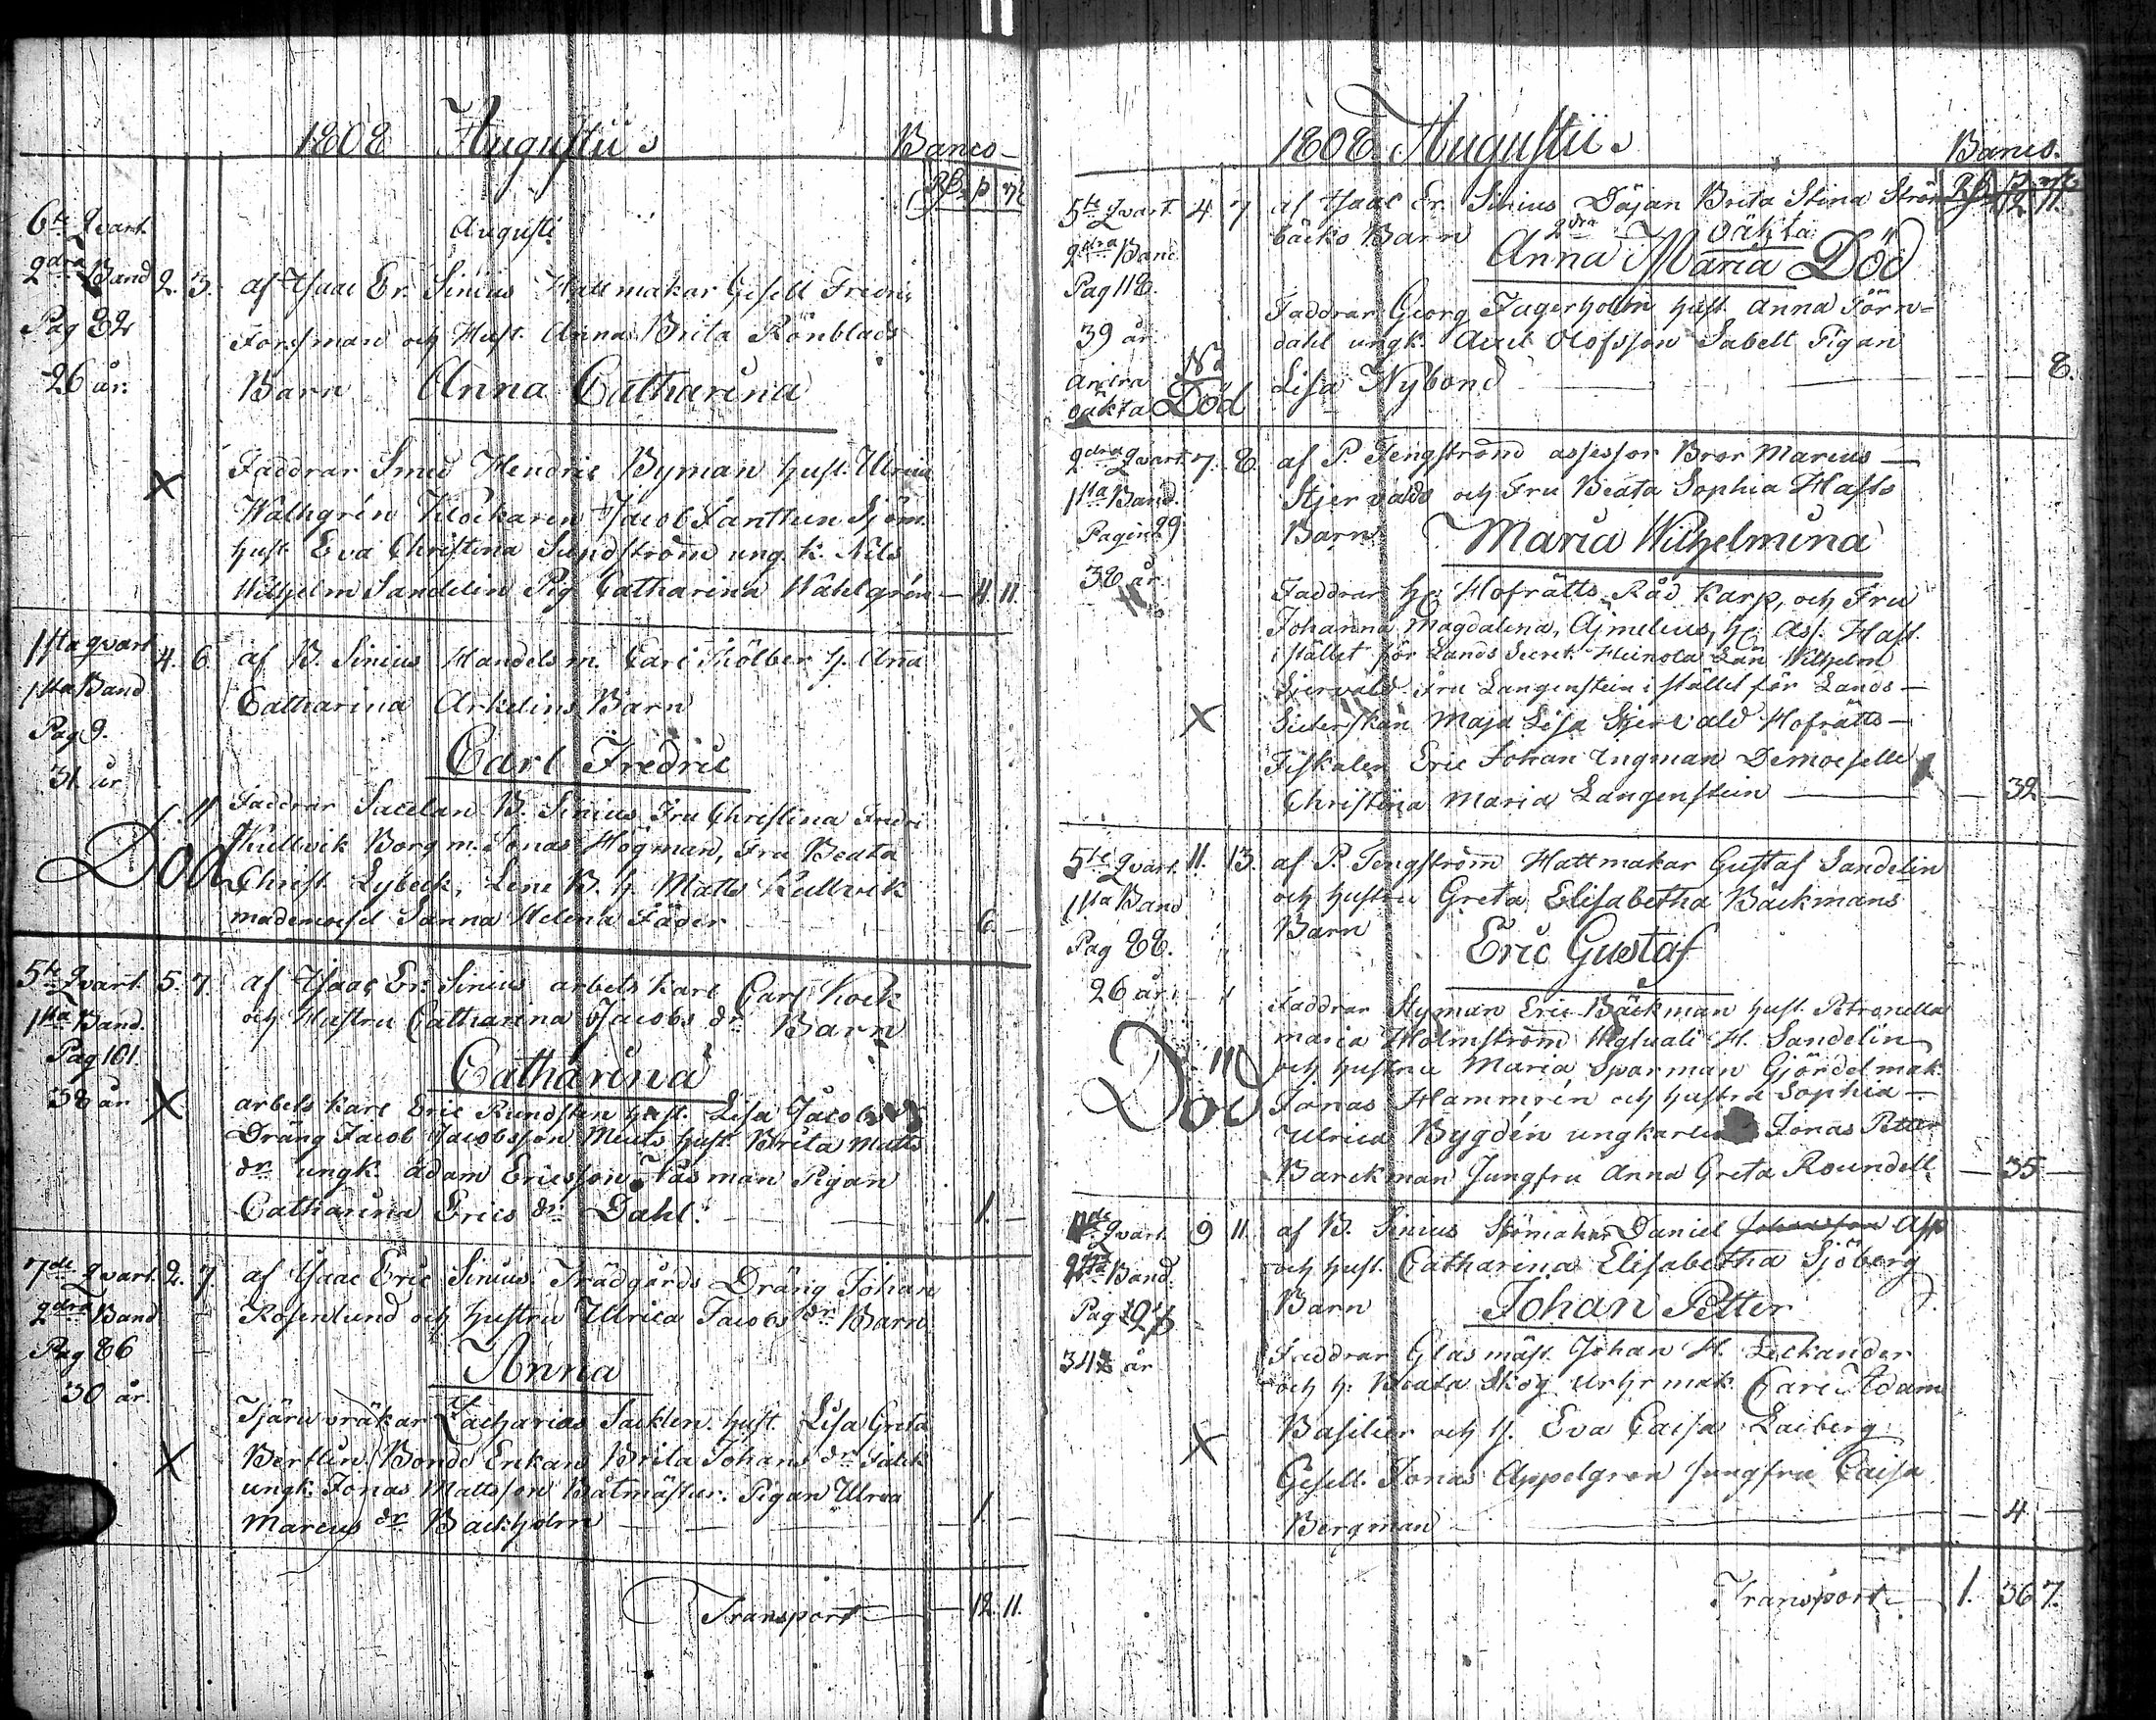 1808 Augustii
Banco
Rb. ß rst
Augusti
6te Qvart.
2dra Band
Pag 82
26 år.
2. 3. af Isaac Er. Sinius Hattmakar Gesell Fredric
Forssman och Hust. Anna Brita Rönblads
Barn Anna Catharina
Faddrar Smed Hendric Byman hust. Ulrica
Wahlgrén Klockaren Jacob Janttun Sjöm.
hust. Eva Christina Sundström ung. k. Nils
Wilhelm Sandelin Pig Catharina Wåhlgrén — 4. 11.
1sta Qvart
1sta Band
Pag 9.
31. år
Död
4. 6. af B. Sinius Handelsm. Carl Thölber h. Anna
Catharina Arkelins Barn
Carl Fredric
Faddrar Sacelan B. Sinius Fru Christina Fredri
Kullvik Borgm. Jonas Högman, Fru Beata
Christ. Lybeck, Lene B. h. Matts Kullvik
mademoisel Sanna Helena Fäder — 6. —
5te Qvart.
1sta Band.
Pag 101.
38 år
5. 7. af Isaac Er. Sinius arbets karl Carl Kock
och Hustru Catharina Jacobs dr Barn
Catharina
arbets karl Eric Rundsten hust. Lisa Jacobs
Dräng Jacob Jacobsson Meuts hust Brita Matts
dr ungk. Adam Ericsson Påsman Pigan
Catharina Erics dr Dahl. — 1. —
7de Qvart.
2dra Band
Pag 86
30 år.
2. 7. af Isaac Eric Sinius Trädgårds Dräng Johan
Rosenlund och Hustru Ulrica Jacobs dr Barn
Anna
Tjäruvräkar Zacharias Sacklen hust Lisa Greta
Bertlin Bonde Enkan Brita Johans dr Falck
ungk. Jonas Mattsson Båtmäster. Pigan Ulrica
Marcus dr Backholm — 1. —
Transport — 12. 11.
1808. Augustii
Banco.
Rb ß rst
5te Qvart
2dra Band
Pag 118.
39 år
andra
oäkta Död
4 7 af Isaac Er. Sinius Däjan Brita Stina Ström 12. 11.
bäcks Barn 2dra oäkta
Anna Maria Död
Faddrar Georg Fagerholm hust. Anna Törn-
dahl ungk. Axel Olofsson Sabell Pigan
Lisa Nybond — 8.
2dra Qvart.
1sta Band.
Pagin 29
38 år.
7. 8. af P. Tengström assessor Bror Marcus —
Stjervalds och Fru Beata Sophia Hasts
Barn Maria Wilhelmina
Faddrar hr Hofrätts Råd Karp, och Fru
Johanna Magdalena, Ajmelius, hr Ass. Hast.
i stället för Lands Secret. Heinola Län Wilhelm
Stiervald Fru Langenstein i stället för Lands —
Maja Lisa Stiervald Hofrätts —
Fiskalen Eric Johan Ungman Demoiselle
Christina Maria Langenstein — 32 —
5te Qvart.
1sta Band
Pag 88.
26 år.
Död
11. 13. af P. Tengström Hattmakar Gustaf Sandelin
och hustru Greta Elisabetha Bäckmans
Barn Eric Gustaf
Faddrar Styrman Eric Bäckman hust. Petronella
maria Holmström H. Sandelin
och hustru Maria Sparman Gjördelmak.
Jonas Hammrén och hustru Sophia —
Ulrica Bygdén ungkarlen Jonas Petter
Barckman Jungfru Anna Greta Roundell — 35 —
Qvart.
Band.
Pag
år
9 11 af B. Sinius Skomakar Daniel Asp
och hust. Catharina Elisabetha Sjöberg
Barn Johan Petter
Faddrar Glasmäst. Johan H. Leckander
och h. Beata Skog Urhrmak. Carl Adam
Basilier och h. Eva Caisa Laiberg
Gesell. Jonas Appelgren Jungfru Caisa
Bergman — 4 —
Transport — 1. 36 7.